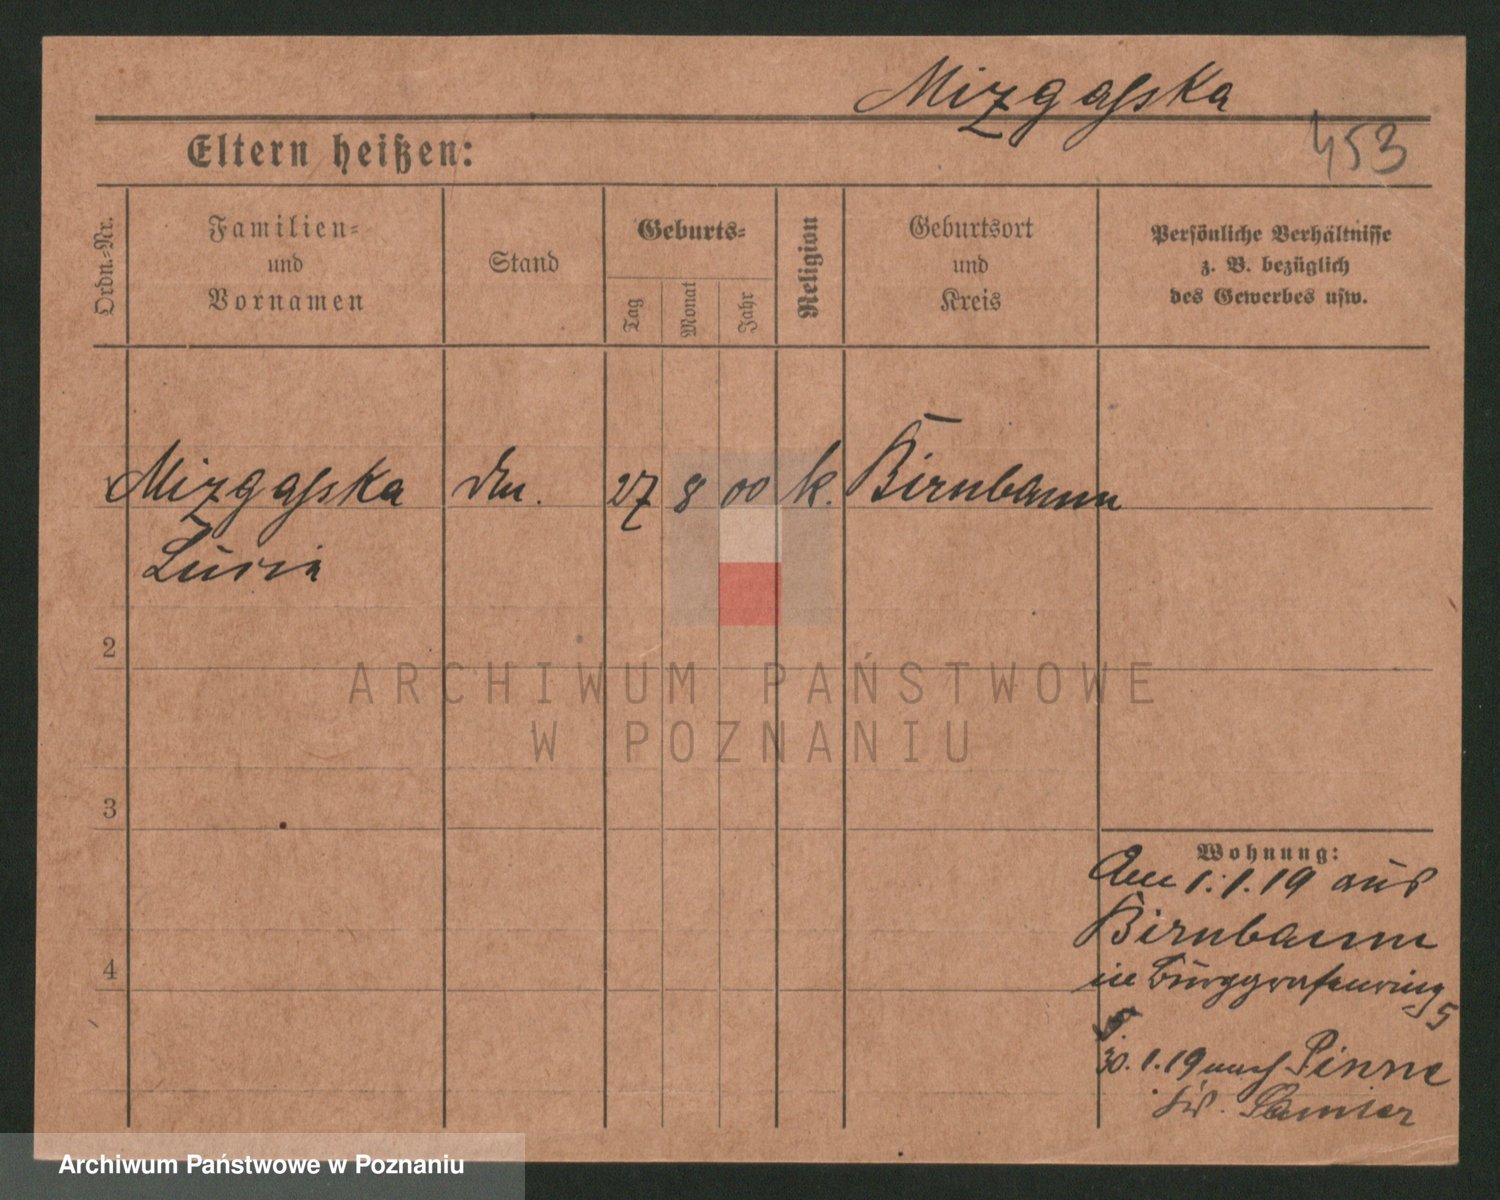 Mizgalska
453
Eltern heißen:
Ordn.-Nr.
Familien-
und
Vornamen
Stand
Geburts-
Tag
Monat
Jahr
Religion
Geburtsort
und
Kreis
Persönliche Verhältnisse
z. B. bezüglich
des Gewerbes usw.
Mizgalska 27 8 00 k. Birnbaum
2
ARCHIWUM PAŃSTWOWE
W POZNANIU
3
Wohnung:
Am 1.1.19 aus
Birnbaum
in Burggrafenring 5
4
30.1.19 nach Pinne
Samter
Archiwum Państwowe w Poznaniu